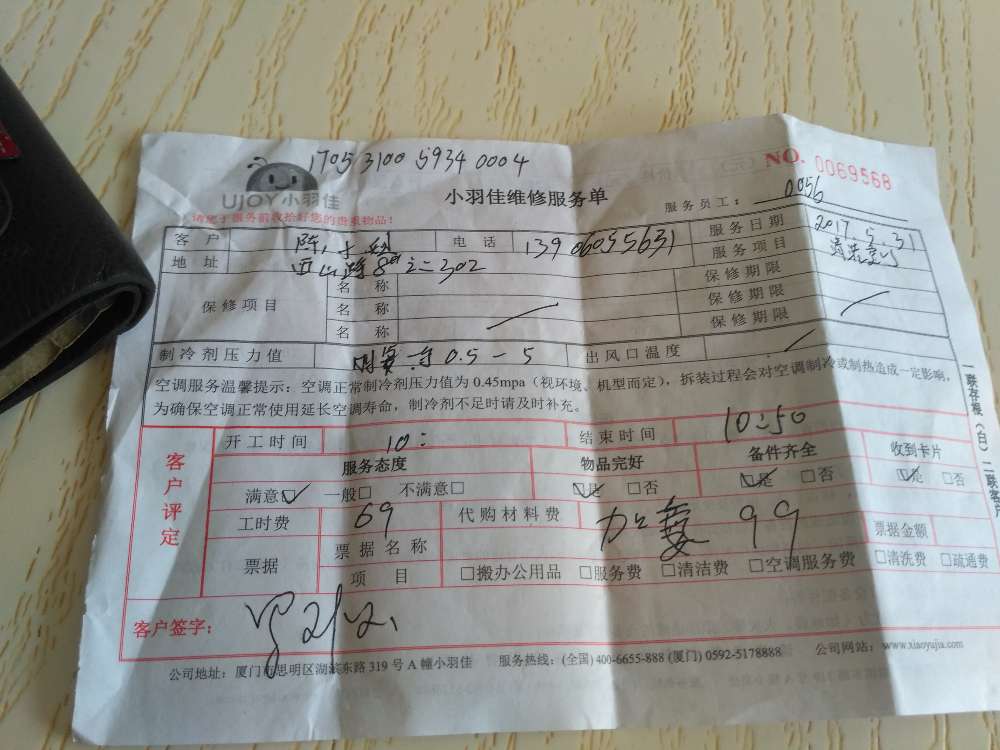 1705 3100 5934 0004
NO. 0069568
UJOY小羽佳
小羽佳维修服务单
服务员工: 0056
请您于服务前收拾好您的贵重物品!
客户 陈 电话 13906055631 服务日期 2017.5.31
地址 西山路 302 服务项目 清洗
保修项目
名称 保修期限
名称 保修期限
名称 保修期限
制冷剂压力值 0.5-5 出风口温度
空调服务温馨提示: 空调正常制冷剂压力值为 0.45mpa (视环境、机型而定), 拆装过程会对空调制冷或制热造成一定影响,
为确保空调正常使用延长空调寿命, 制冷剂不足时请及时补充。
一联存根(白) 二联客户
客户评定
开工时间 10: 结束时间 10:50
服务态度 物品完好 备件齐全 收到卡片
满意☑ 一般□ 不满意□ ☑是 □否 ☑是 □否 ☑是 □否
工时费 69 代购材料费 99
票据 票据名称 票据金额
项目 □搬办公用品 □服务费 □清洁费 □空调服务费 □清洗费 □疏通费
客户签字:
公司地址: 厦门市思明区湖滨东路 319 号 A 幢小羽佳 服务热线: (全国) 400-6655-888 (厦门) 0592-5178888 公司网站: www.xiaoyujia.com